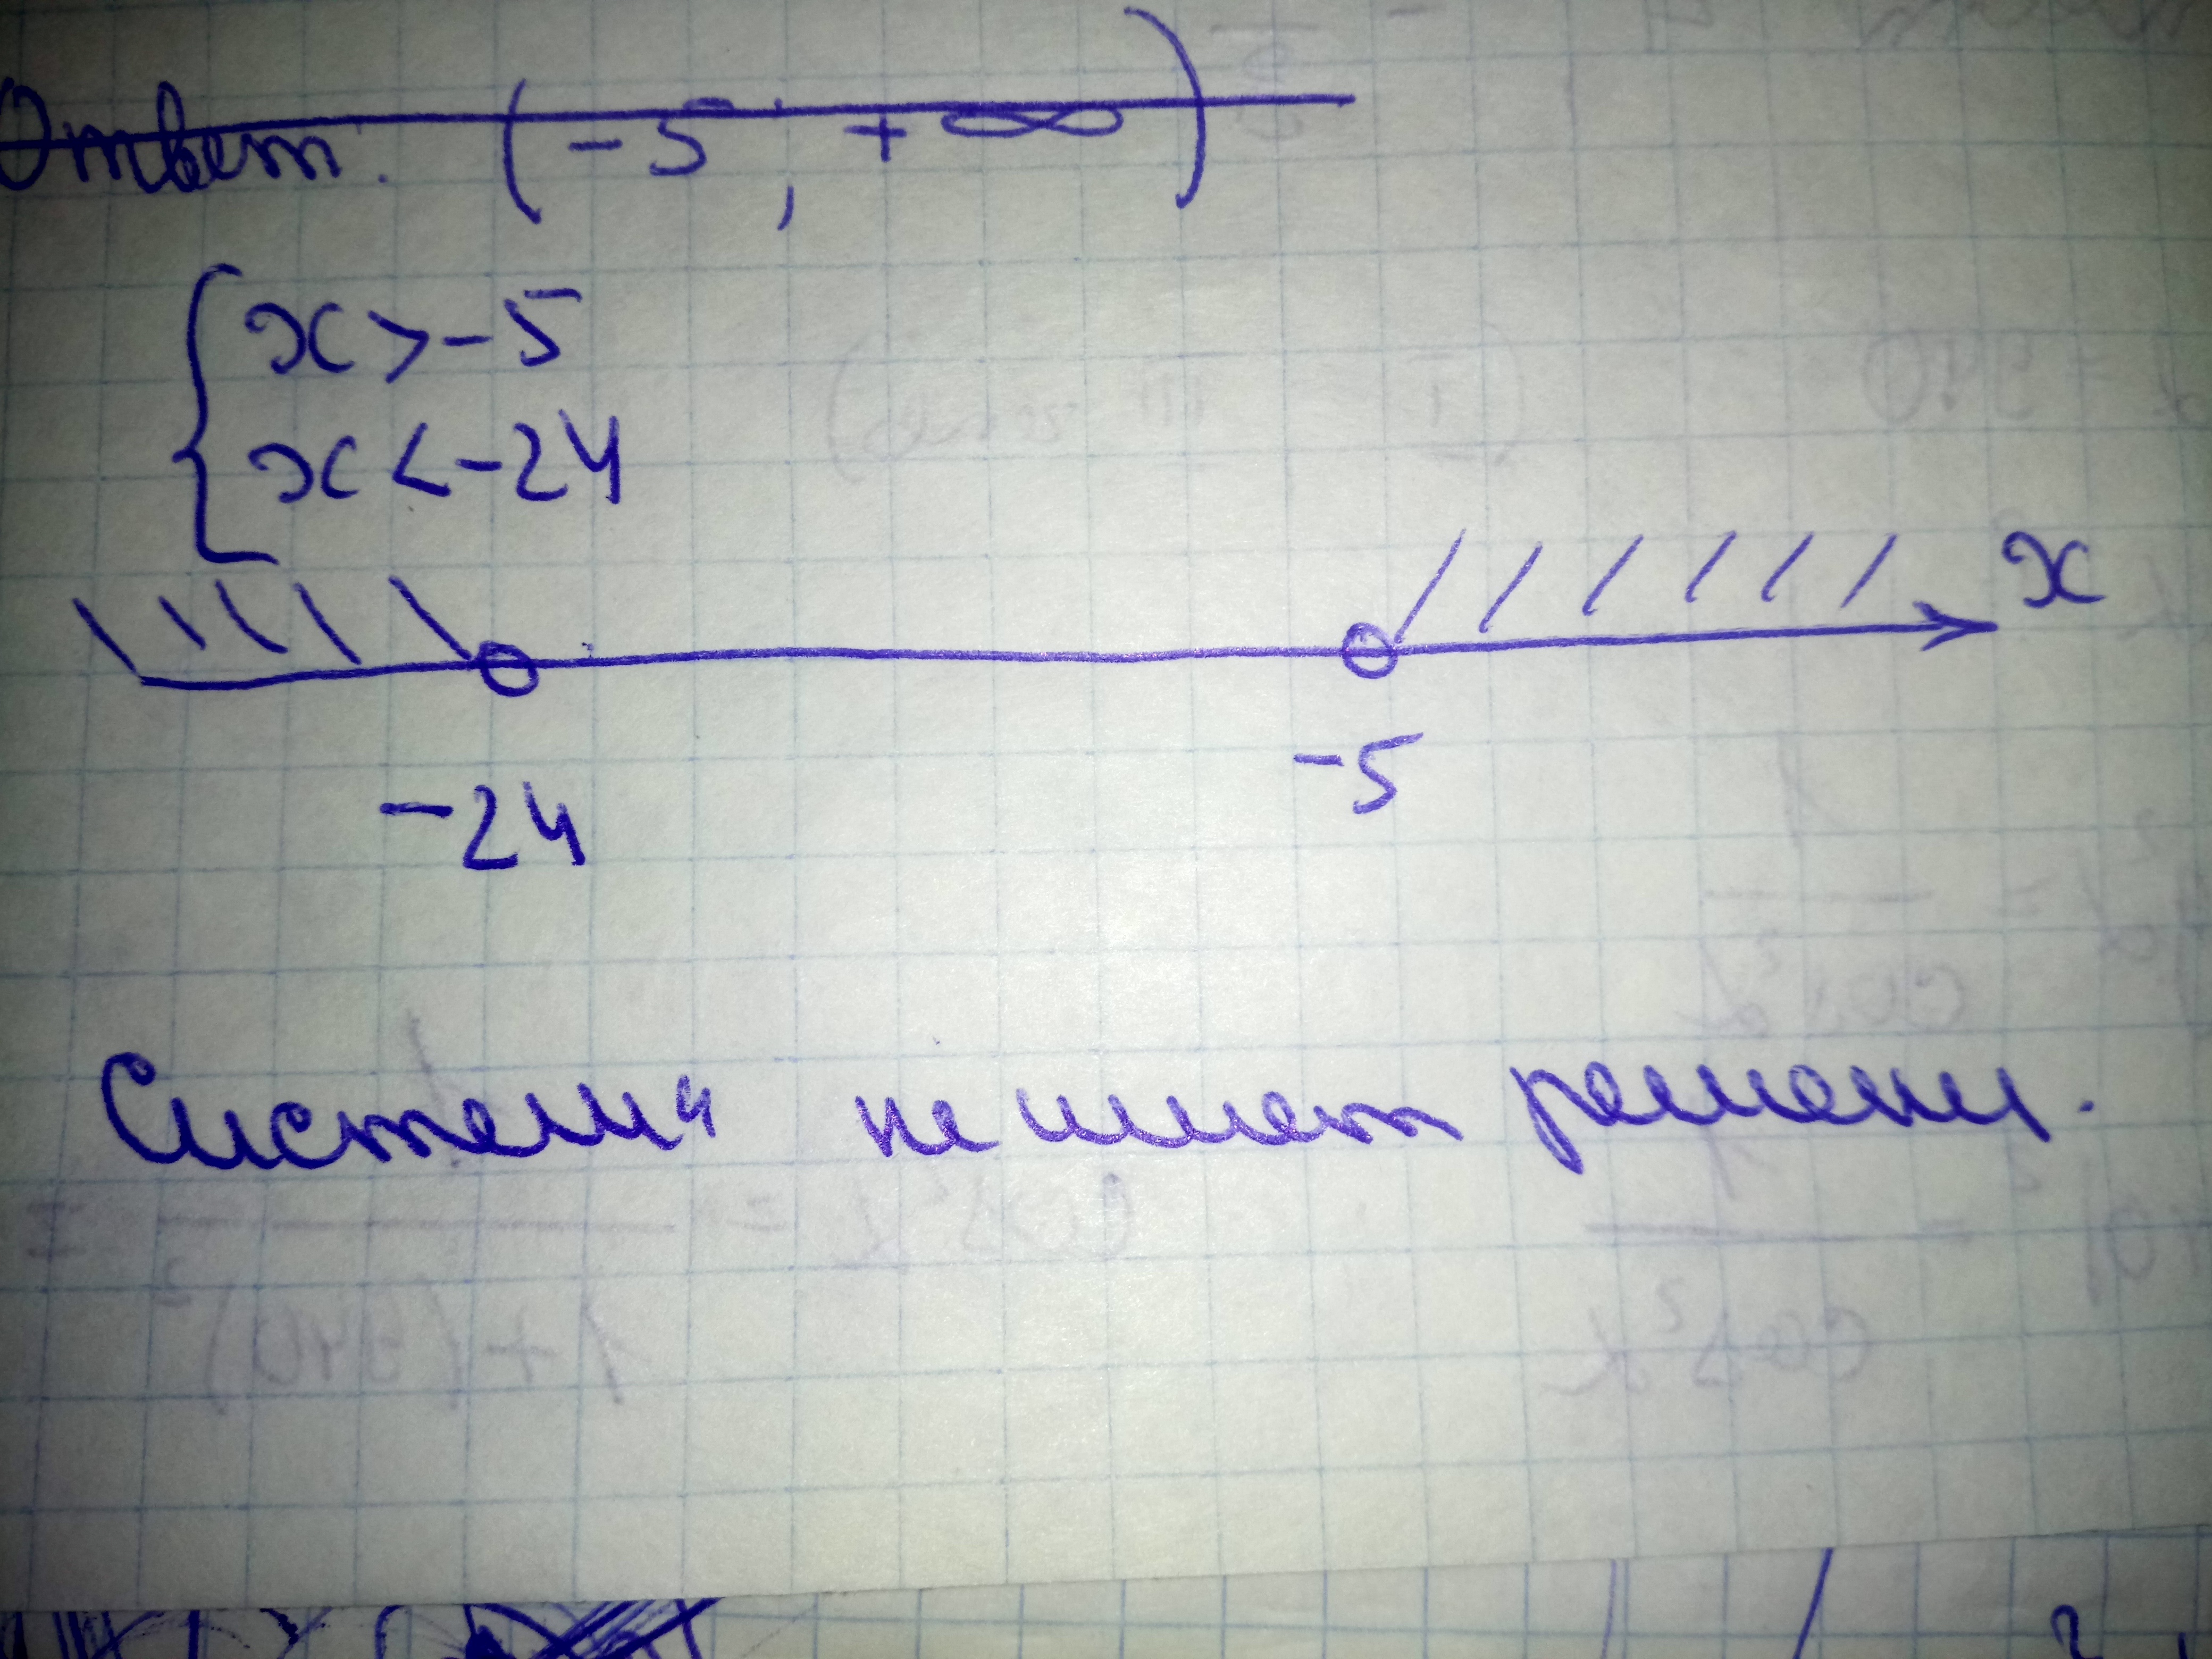 Ответ: (-5; +∞)
{ x > -5
x < -24
x
-24
-5
Система не имеет решений.